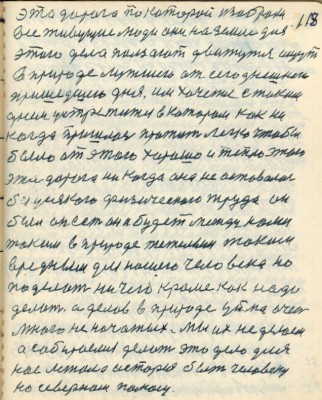 эта дорога по которой изобрали
все живущие люди они на земле для
этого дела ползают движутся ищут
в природе лучшего от сегодняшнего
пришедшего дня. им хочется с таким
днем встретити в котором как ни
когда пришлось прожить легко чтобы
было от этого хорошо и тепло этого
эта дорога ни когда она не оставалас
без всякого физического труда он
был он есть он и будет между нами
таким в природе тяжелым таким
вредным для нашего человека но
поделат ни чего кроме как надо
делат. а делов в природе
много не початых. мы их не делаем
а собираемся делат это дело для
нас история быть человеку
но северном полюсу.
118